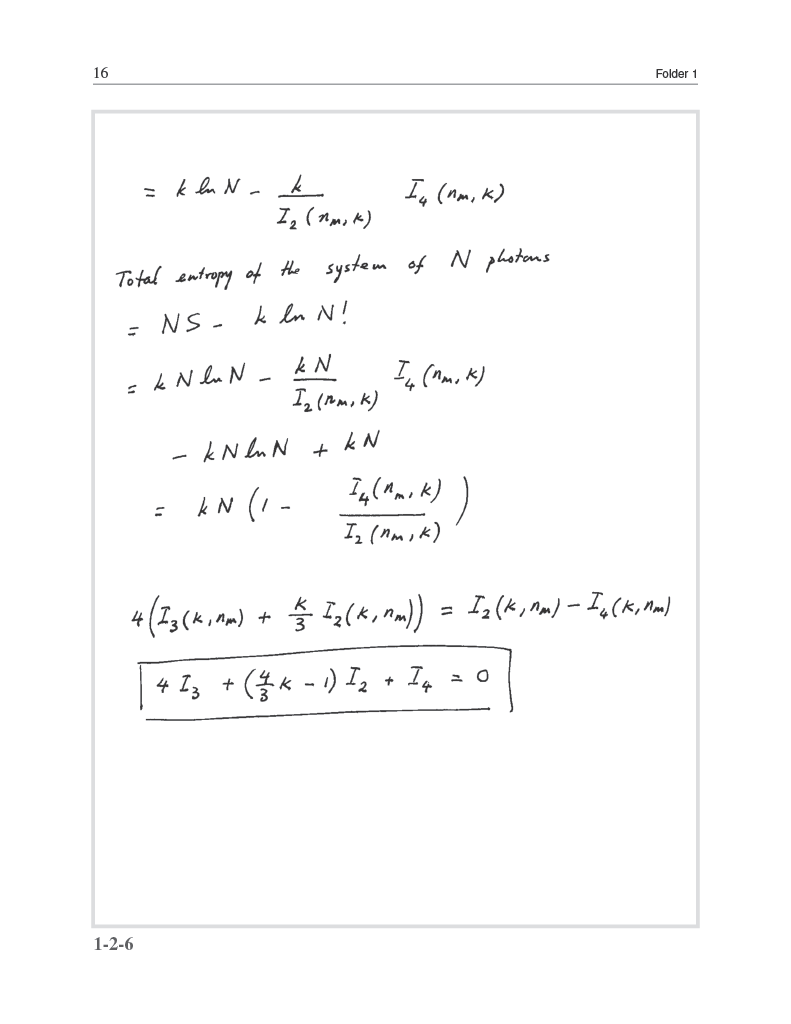 16 Folder 1
= k ln N - k / I₂ (nₘ, κ) I₄ (nₘ, κ)
Total entropy of the system of N photons
= NS - k ln N!
= k N ln N - k N / I₂ (nₘ, κ) I₄ (nₘ, κ)
- k N ln N + k N
= k N (1 - I₄ (nₘ, κ) / I₂ (nₘ, κ))
4 (I₃ (κ, nₘ) + κ/3 I₂ (κ, nₘ)) = I₂ (κ, nₘ) - I₄ (κ, nₘ)
4 I₃ + (4/3 κ - 1) I₂ + I₄ = 0
1-2-6